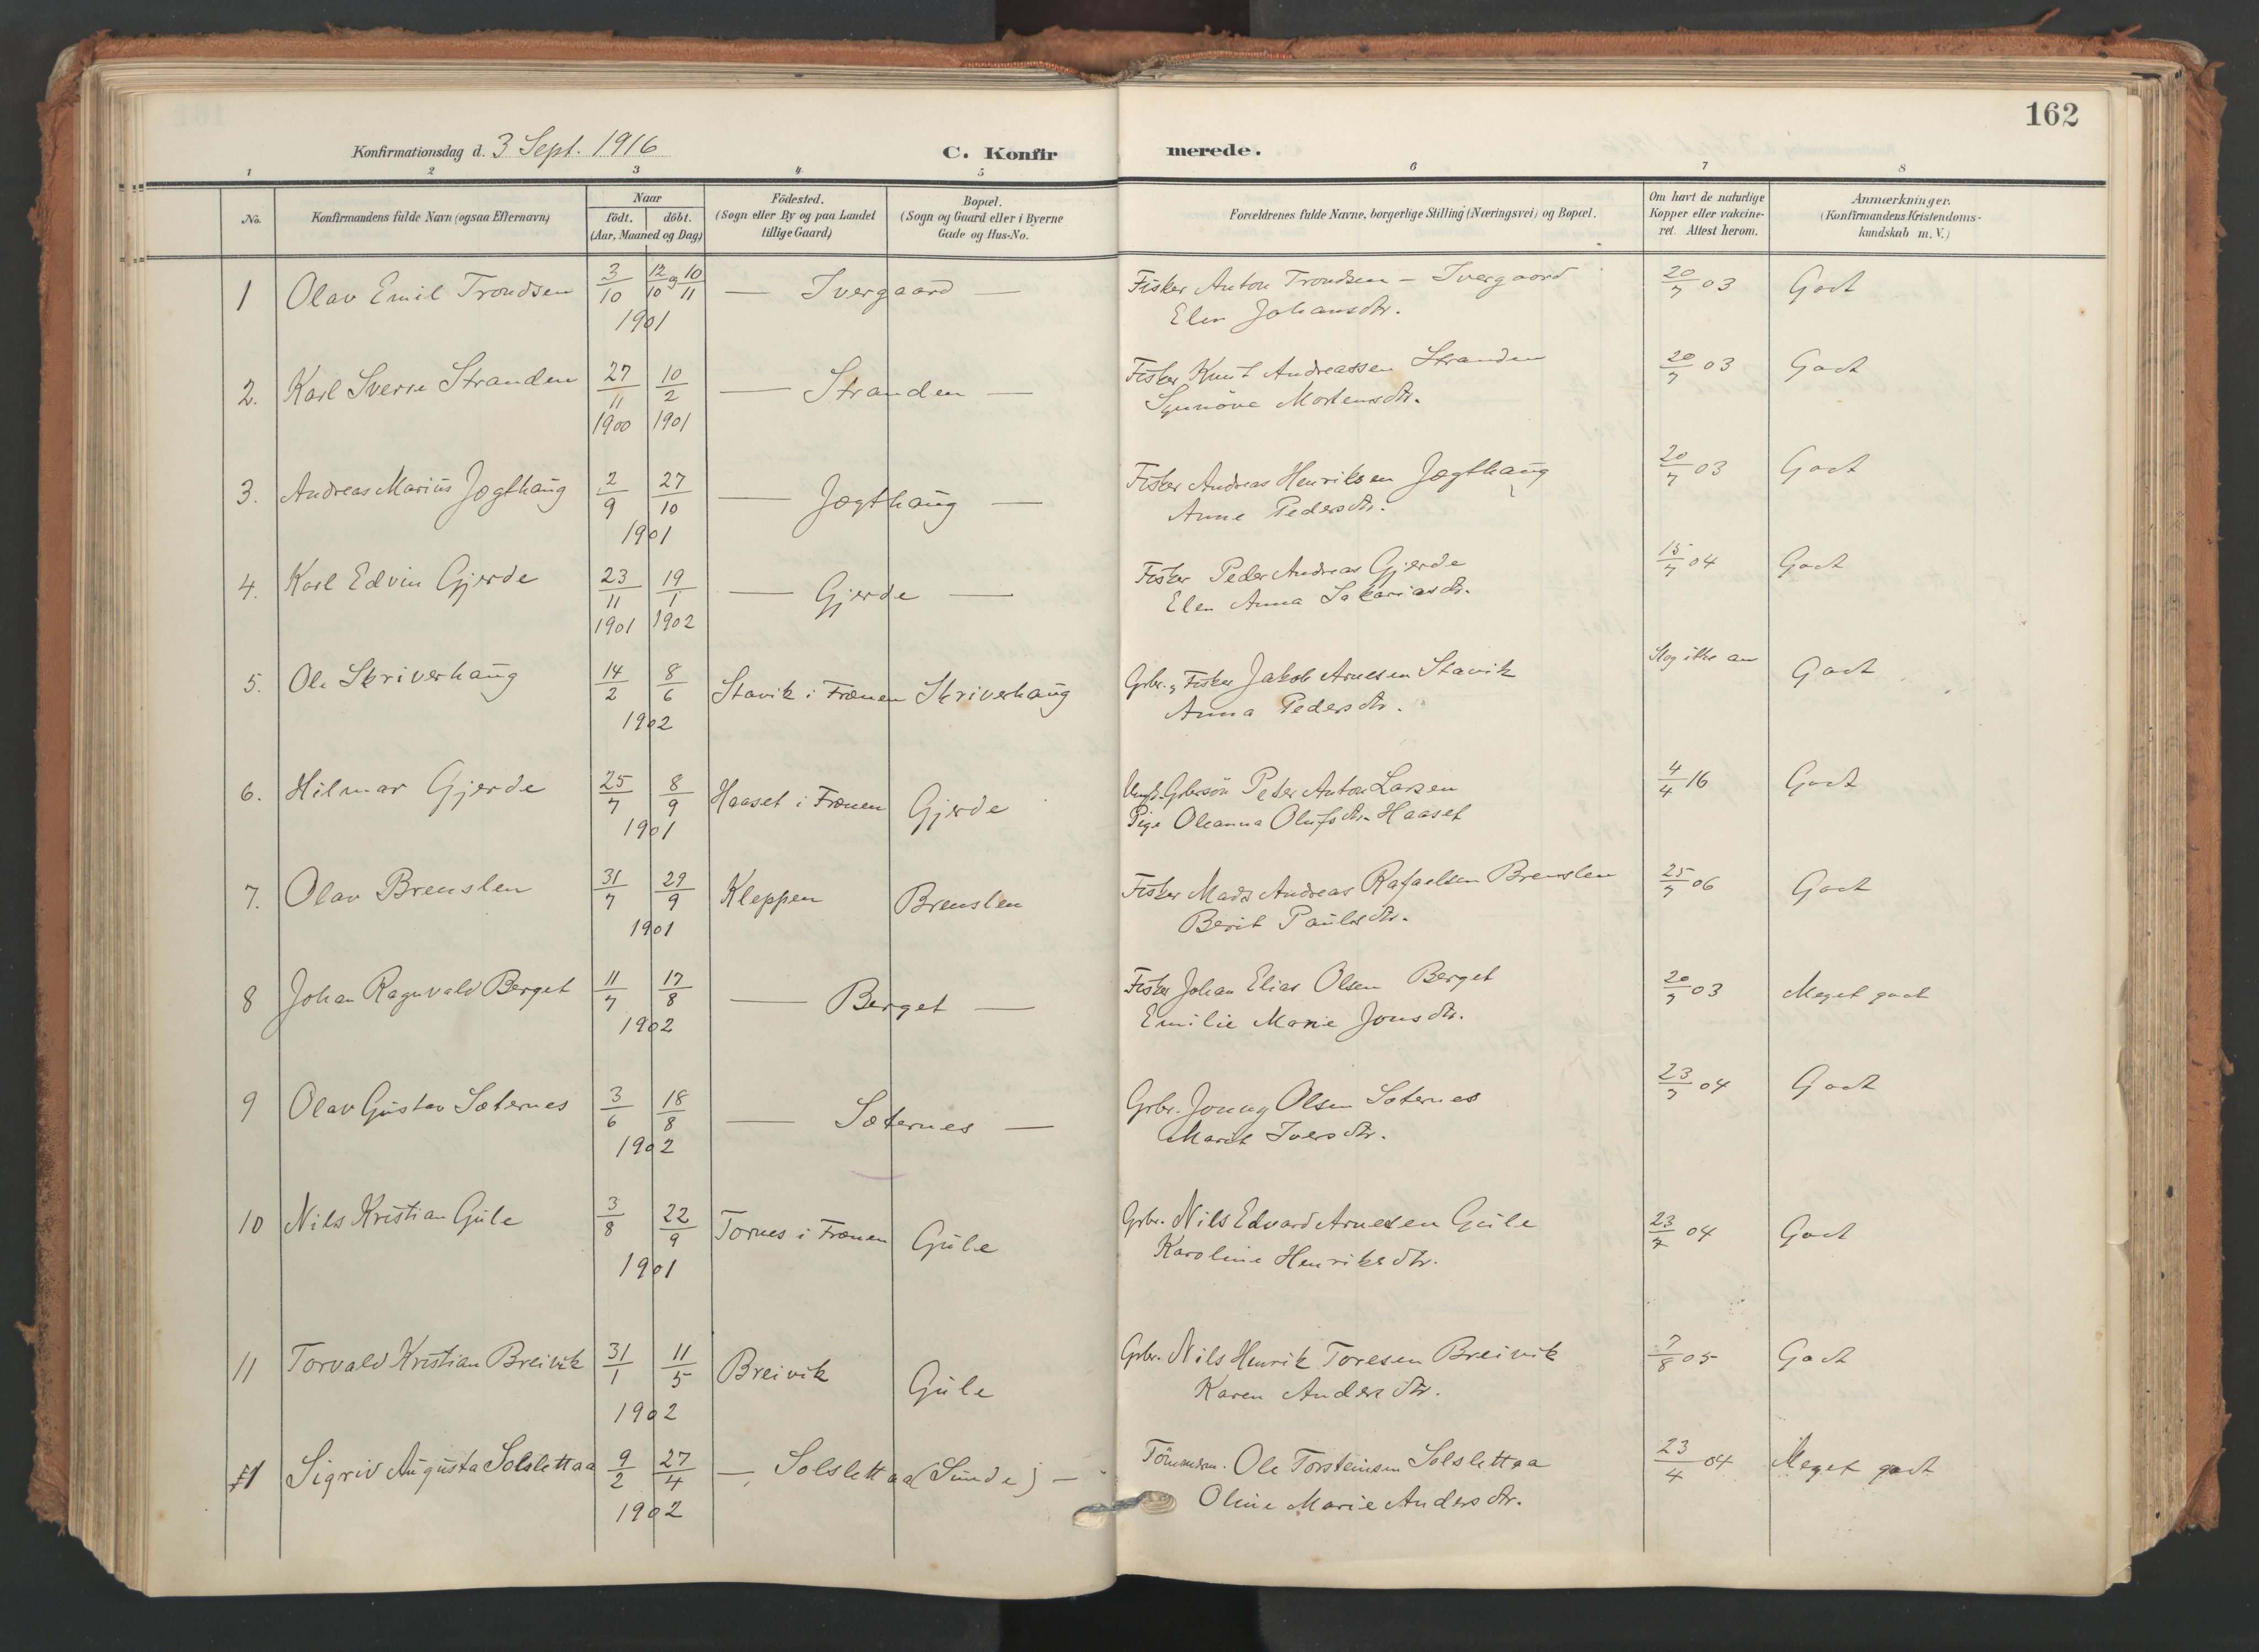 162
Konfirmationsdag d. 3 Sept. 1916
C. Konfirmerede.
1 2 3 4 5 6 7 8
No.
Konfirmandens fulde Navn (ogsaa Efternavn)
Naar
födt. döbt.
(Aar, Maaned og Dag)
Födested.
(Sogn eller By og paa Landet
tillige Gaard)
Bopæl.
(Sogn og Gaard eller i Byerne
Gade og Hus-No.
Forældrenes fulde Navne, borgerlige Stilling (Næringsvei) og Bopæl.
Om havt de naturlige
Kopper eller vakcine-
ret. Attest herom.
Anmærkninger.
(Konfirmandens Kristendoms-
kundskab m. V.)
1 Olav Emil Trondsen 3/10 12/10 og 10/11 — Ivergaard — Fisker Anton Trondsen - Ivergaard 20/7 03 Godt
1901 Elen Johansdtr.
2. Karl Sverre Stranden 27/11 10/2 — Stranden — Fisker Knut Andreassen Stranden 20/7 03 Godt
1900 1901 Synnöve Mortensdtr.
3. Andreas Marius Jægthaug 2/9 27/10 — Jægthaug — Fisker Andreas Henriksen Jægthaug 20/7 03 Godt
1901 Anne Pedersdtr.
4. Karl Edvin Gjerde 23/11 19/1 — Gjerde — Fisker Peder Andreas Gjerde 15/7 04 Godt
1901 1902 Elen Anna Sakariasdtr.
5. Ole Skriverhaug 14/2 8/6 Stavik i Frænen Skriverhaug Grbr. og Fisker Jakob Arnesen Stavik Slog ikke an Godt
1902 Anna Pedersdtr.
6. Hilmar Gjerde 25/7 8/9 Haaset i Frænen Gjerde Ungk. Grbrsön Peter Anton Larsen 4/4 16 Godt
1901 Pige Oleanna Olufsdtr. Haaset
7. Olav Brenslen 31/7 29/9 Kleppen Brenslen Fisker Mads Andreas Rafaelsen Brenslen 25/7 06 Godt
1901 Berit Paulsdtr.
8 Johan Ragnvald Berget 11/7 17/8 — Berget — Fisker Johan Elias Olsen Berget 20/7 03 Meget godt
1902 Emilie Marie Jonsdtr.
9 Olav Gustav Sæternes 3/6 18/8 — Sæternes — Grbr. Jonny Olsen Sæternes 23/7 04 Godt
1902 Marit Iversdtr.
10 Nils Kristian Gule 3/8 22/9 Tornes i Frænen Gule Grbr. Nils Edvard Arnesen Gule 23/7 04 Godt
1901 Karoline Henriksdtr.
11 Torvald Kristian Breivik 31/1 11/5 Breivik Gule Grbr. Nils Henrik Toresen Breivik 7/8 05 Godt
1902 Karen Andersdtr.
1 Sigrid Augusta Solslettaa 9/2 27/4 — Solslettaa (Sunde) — Tömmerm. Ole Torsteinsen Solslettaa 23/4 04 Meget godt
1902 Oline Marie Andersdtr.